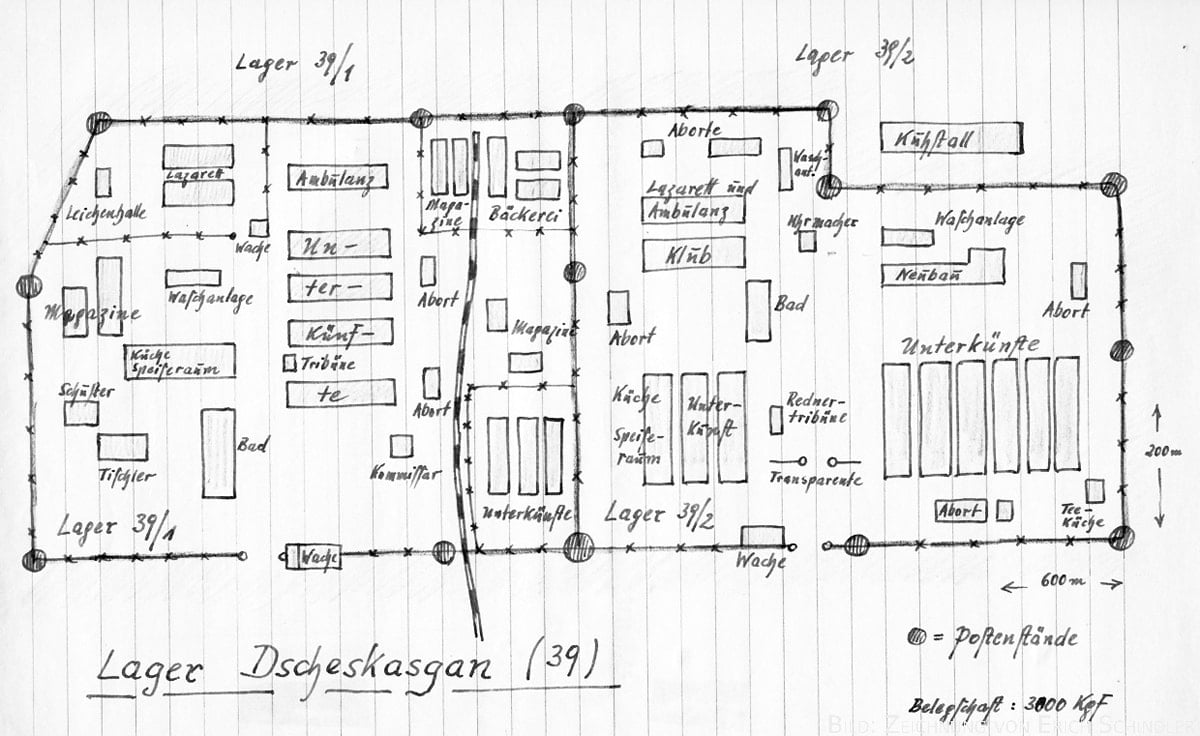 Lager 39/1
Lager 39/2
Leichenhalle
Lazarett
Wache
Ambulanz
Un-
ter-
künf-
te
Magazine
Waschanlage
Küche
Speiseraum
Tribüne
Schuster
Tischler
Bad
Kommissar
Abort
Abort
Maga-
zine
Bäckerei
Magazine
Unterkünfte
Lager 39/1
Wache
Aborte
Wasch-
anl.
Lazarett und
Ambulanz
Klub
Uhrmacher
Abort
Bad
Küche
Speise-
raum
Unter-
kunft
Redner-
tribüne
Transparente
Lager 39/2
Wache
Kuhstall
Waschanlage
Neubau
Abort
Unterkünfte
Abort
Tee-
küche
200m
600m
= Postenstände
Lager Dscheskasgan (39)
Belegschaft: 3000 Kgf
Bild: Zeichnung von Erich Schindler